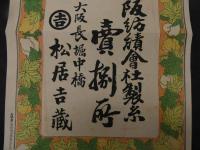 阪紡績會社製糸
賣捌所
大阪長堀中橋
吉 松居吉蔵